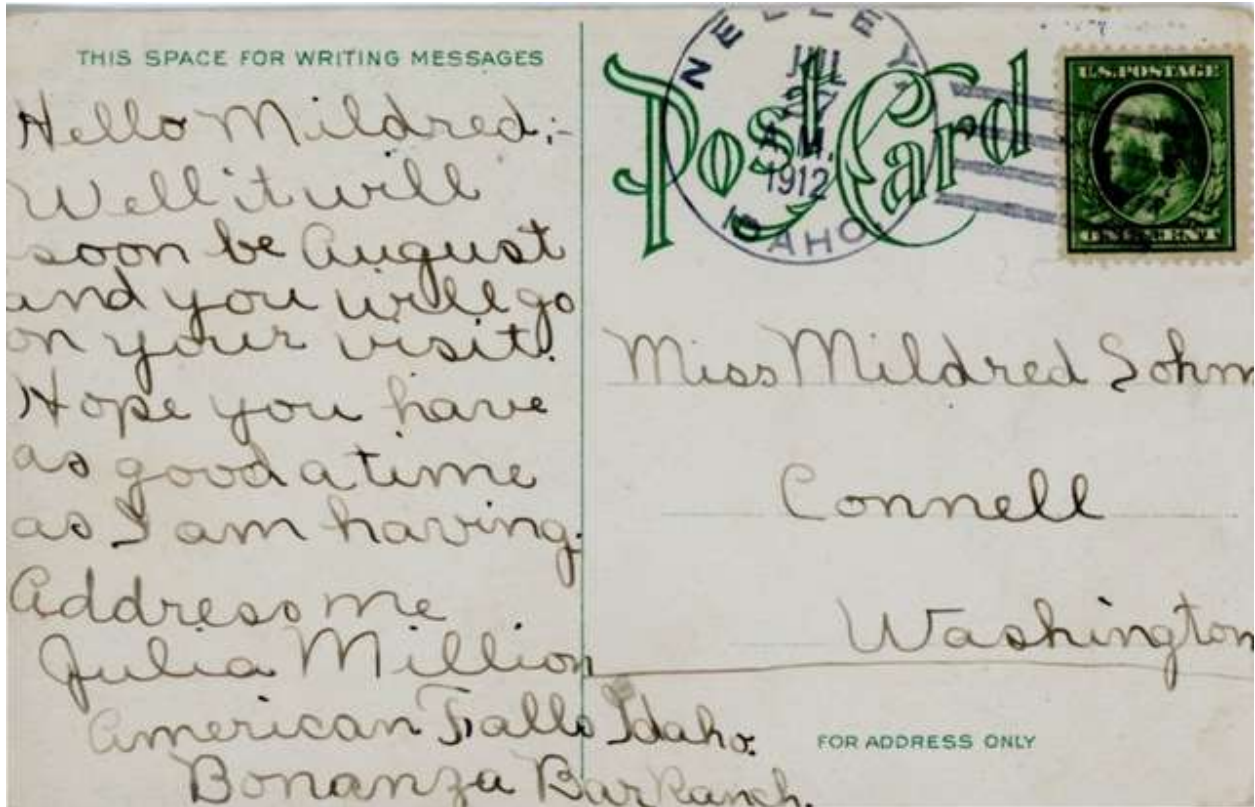 THIS SPACE FOR WRITING MESSAGES
Hello Mildred;-
Well it will
soon be August
and you will go
on your visit.
Hope you have
as good a time
as I am having.
Address me
Julia Million
American Falls Idaho.
Bonanza Bar Ranch.
Post Card
NEELEY
JUL
27
M.
1912
IDAHO
U.S. POSTAGE
Miss Mildred Sohm
Connell
Washington
FOR ADDRESS ONLY